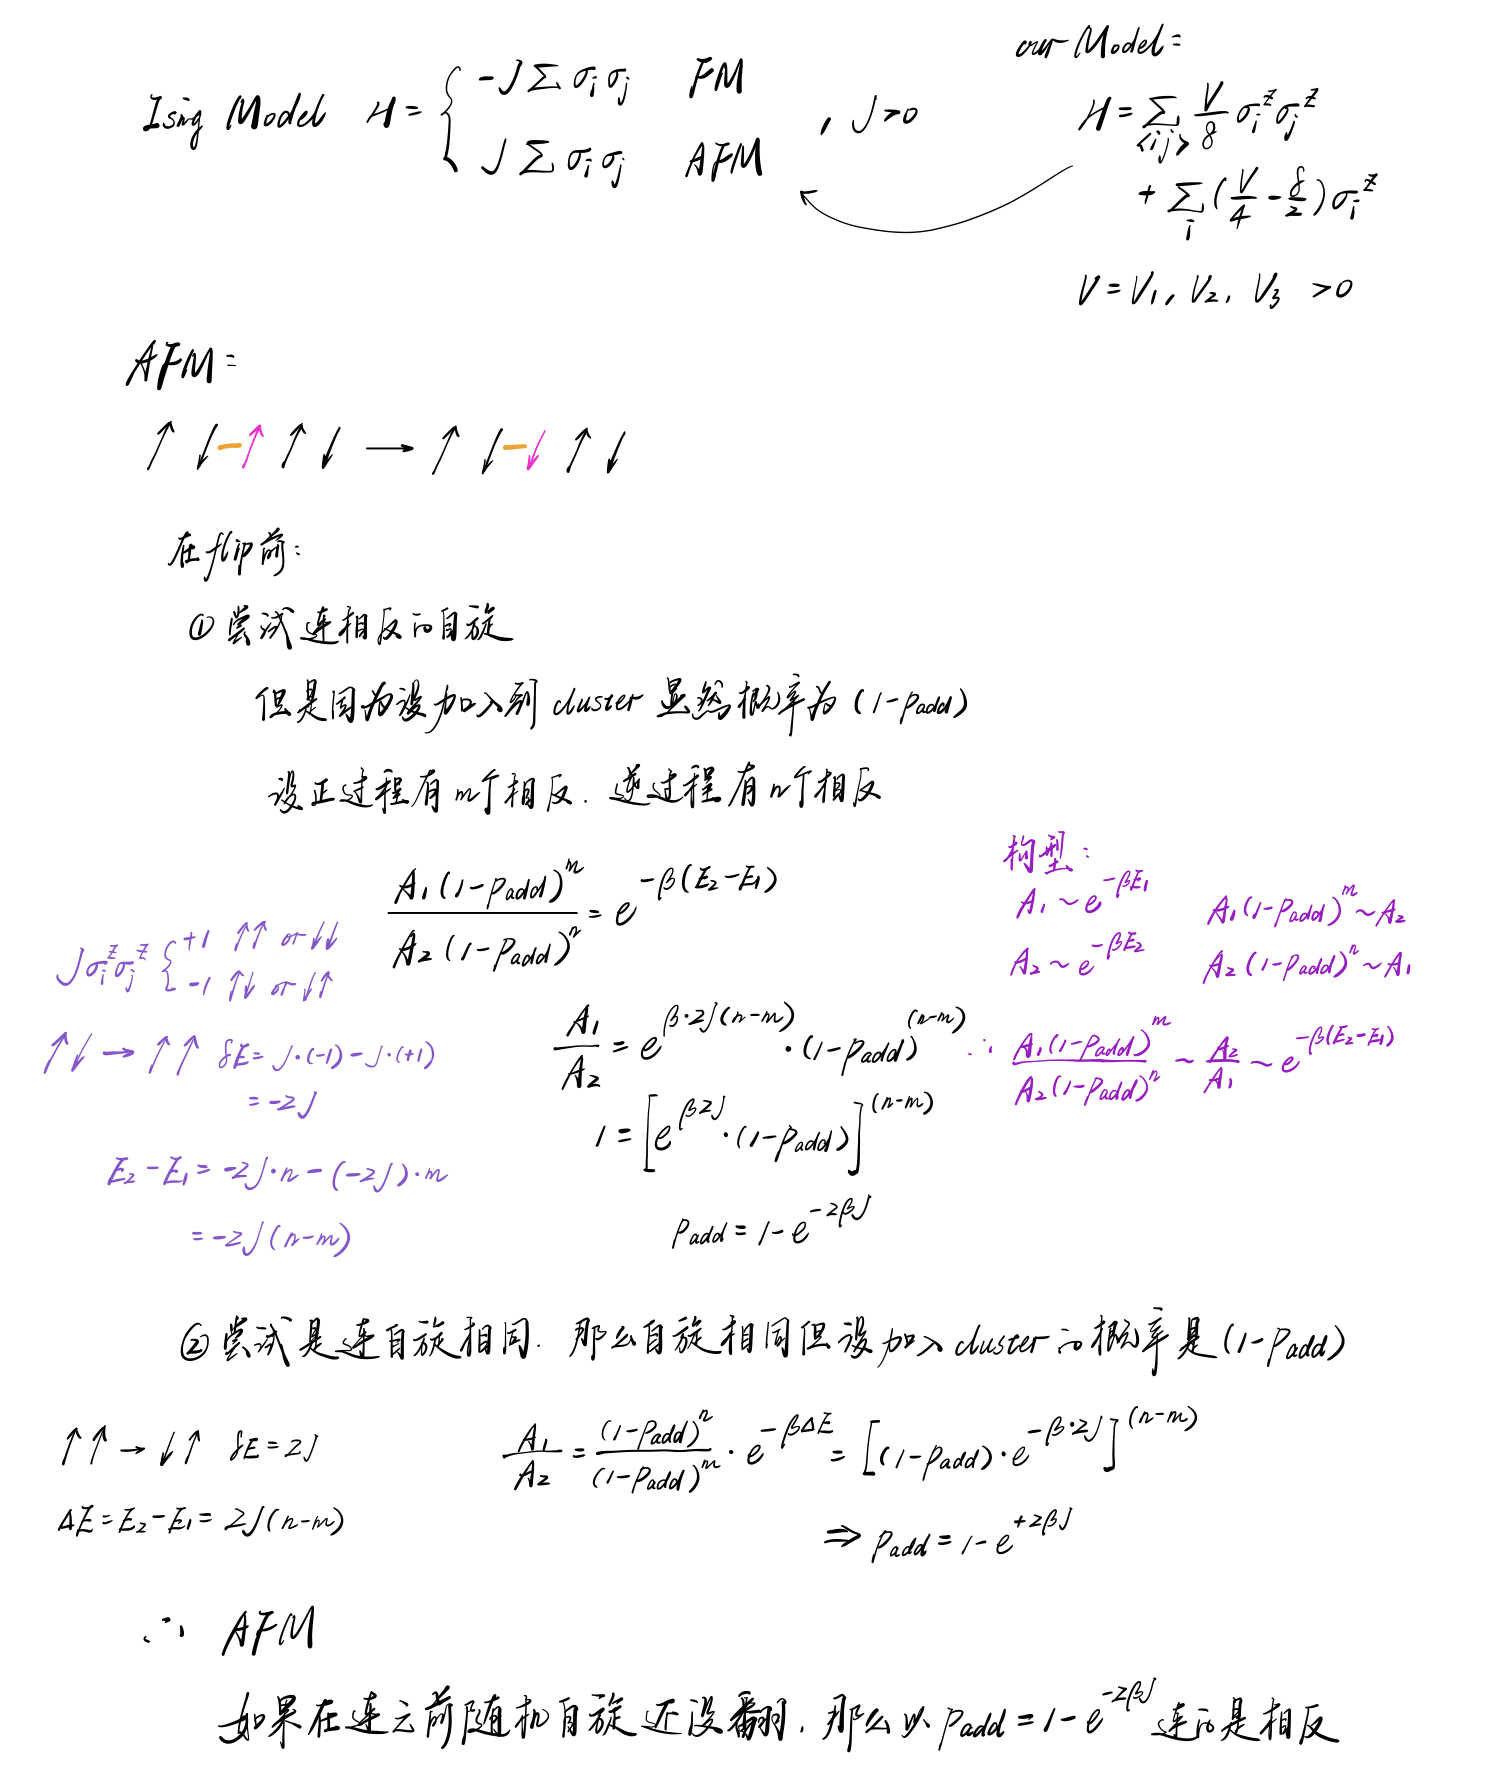 our Model:
Ising Model H = { -J Σ σi σj FM
J Σ σi σj AFM , J>0
H = Σ<ij> V/8 σi^z σj^z
+ Σi (V/4 - δ/2) σi^z
V = V1, V2, V3 >0
AFM:
↑ ↓ - ↑ ↑ ↓ → ↑ ↓ - ↓ ↑ ↓
在flip前:
① 尝试连相反的自旋
但是因为没加入到 cluster 显然概率为 (1-Padd)
设正过程有m个相反. 逆过程有n个相反
A1(1-Padd)^m / A2(1-Padd)^n = e^{-β(E2-E1)}
构型:
A1 ~ e^{-βE1} A1(1-Padd)^m ~ A2
A2 ~ e^{-βE2} A2(1-Padd)^n ~ A1
∴ A1(1-Padd)^m / A2(1-Padd)^n ~ A2/A1 ~ e^{-β(E2-E1)}
Jσi^zσj^z { +1 ↑↑ or ↓↓
-1 ↑↓ or ↓↑
↑↓ → ↑↑ δE = J·(-1) - J·(+1)
= -2J
E2-E1 = -2J·n - (-2J)·m
= -2J(n-m)
A1/A2 = e^{β·2J(n-m)}·(1-Padd)^{(n-m)}
1 = [e^{β2J}·(1-Padd)]^{(n-m)}
Padd = 1 - e^{-2βJ}
② 尝试是连自旋相同. 那么自旋相同但没加入 cluster 的概率是 (1-Padd)
↑↑ → ↓↑ δE = 2J
ΔE = E2-E1 = 2J(n-m)
A1/A2 = (1-Padd)^n / (1-Padd)^m · e^{-βΔE} = [(1-Padd)·e^{-β·2J}]^{(n-m)}
⇒ Padd = 1 - e^{+2βJ}
∴ AFM
如果在连之前随机自旋还没翻, 那么以 Padd = 1 - e^{-2βJ} 连的是相反